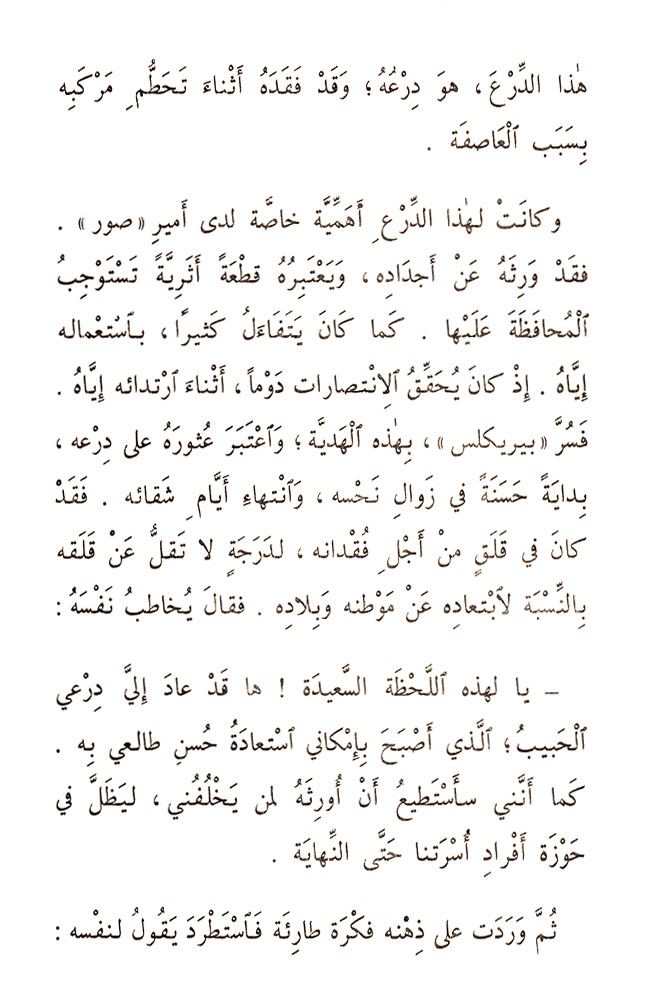 هٰذا الدِّرْعَ، هوَ دِرْعُهُ؛ وَقَدْ فَقَدَهُ أَثْناءَ تَحَطُّمِ مَرْكَبِه
بِسَبَب ٱلْعَاصفَة .
وكانَتْ لهٰذا الدِّرْعِ أَهَمِّيَّة خاصَّة لدى أَميرِ «صور» .
فقَدْ وَرِثَهُ عَنْ أَجدَادِه، وَيَعْتَبِرُهُ قطْعَةً أَثَرِيَّةً تَسْتَوْجِبُ
ٱلْمُحافَظَةَ عَلَيْها . كَما كانَ يَتَفَاءَلُ كَثيرًا، بٱسْتعْماله
إيَّاهُ . إِذْ كانَ يُحَقِّقُ ٱلِانْتصارات دَوْماً، أَثْناءَ ٱرْتدائه إيَّاهُ .
فَسُرَّ «بيريكلس»، بِهٰذه ٱلْهَديَّة؛ وَٱعْتَبَرَ عُثورَهُ على دِرْعه،
بِدايَةً حَسَنَةً في زَوالِ نَحْسه، وَٱنْتهاءِ أَيَّامِ شَقائه . فَقَدْ
كانَ في قَلَقٍ منْ أَجْلِ فُقْدانه، لدَرَجَةٍ لا تَقلُّ عَنْ قَلَقه
بِالنِّسْبَة لٱبْتعادِه عَنْ مَوْطنه وَبِلادِه . فقالَ يُخاطبُ نَفْسَهُ :
– يا لهذه ٱللَّحْظَة السَّعيدَة ! ها قَدْ عادَ إليَّ دِرْعي
ٱلْحَبيبُ؛ ٱلَّذي أَصْبَحَ بِإمْكاني ٱسْتعادَةُ حُسنِ طالعي بِه .
كَما أَنَّني سأَسْتَطيعُ أَنْ أُورِثَهُ لمن يَخْلُفُني، ليَظَلَّ في
حَوْزَة أَفْرادِ أُسْرَتنا حَتَّى النِّهايَة .
ثُمَّ وَرَدَت على ذِهْنه فكْرَة طارِئَة فَٱسْتَطْرَدَ يَقُولُ لنفْسه :